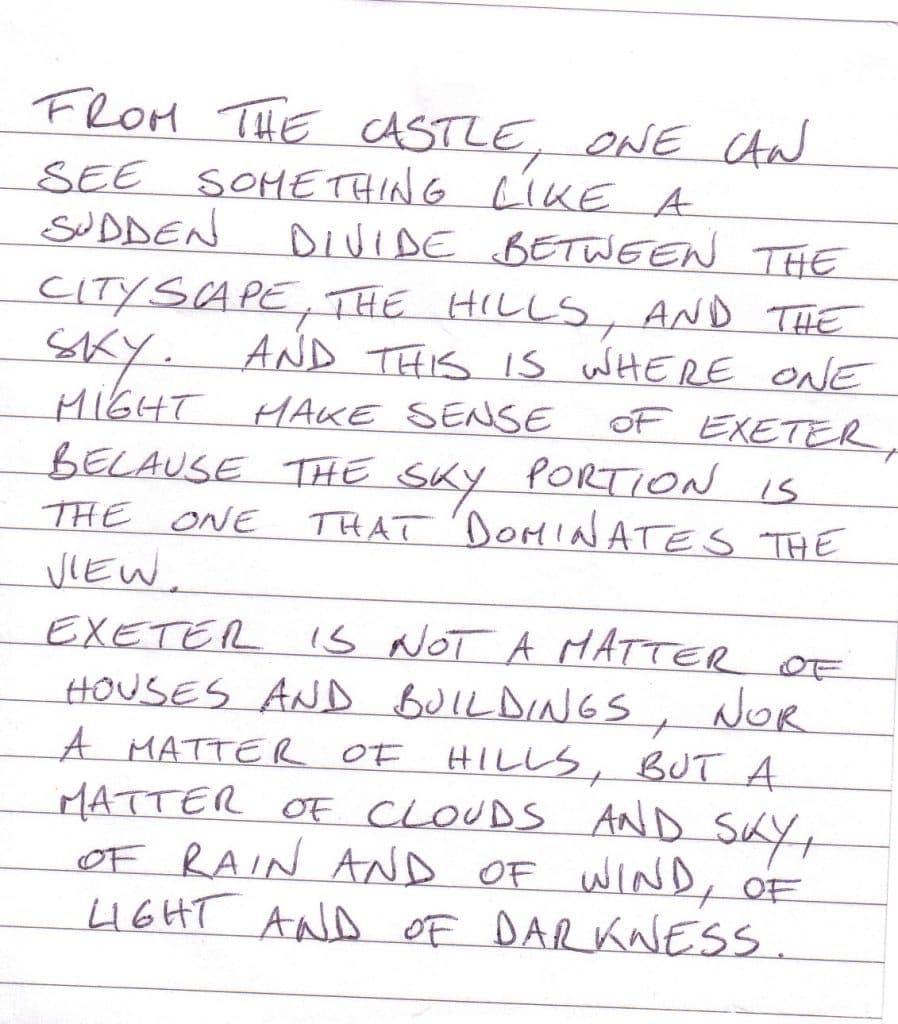 FROM THE CASTLE, ONE CAN
SEE SOMETHING LIKE A
SUDDEN DIVIDE BETWEEN THE
CITYSCAPE, THE HILLS, AND THE
SKY. AND THIS IS WHERE ONE
MIGHT MAKE SENSE OF EXETER,
BECAUSE THE SKY PORTION IS
THE ONE THAT DOMINATES THE
VIEW.
EXETER IS NOT A MATTER OF
HOUSES AND BUILDINGS, NOR
A MATTER OF HILLS, BUT A
MATTER OF CLOUDS AND SKY,
OF RAIN AND OF WIND, OF
LIGHT AND OF DARKNESS.